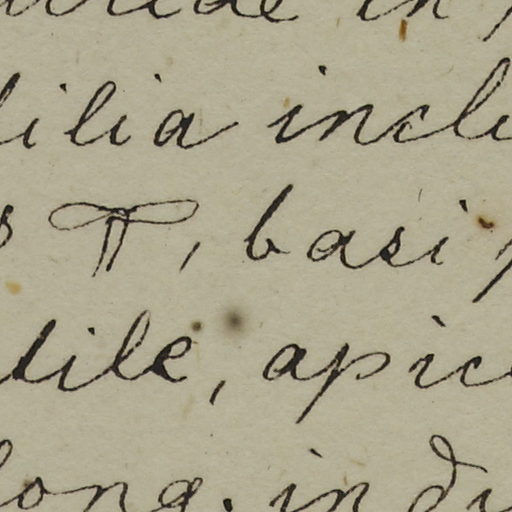 in
ilia incl
π, basi
tile, apic
long. in di